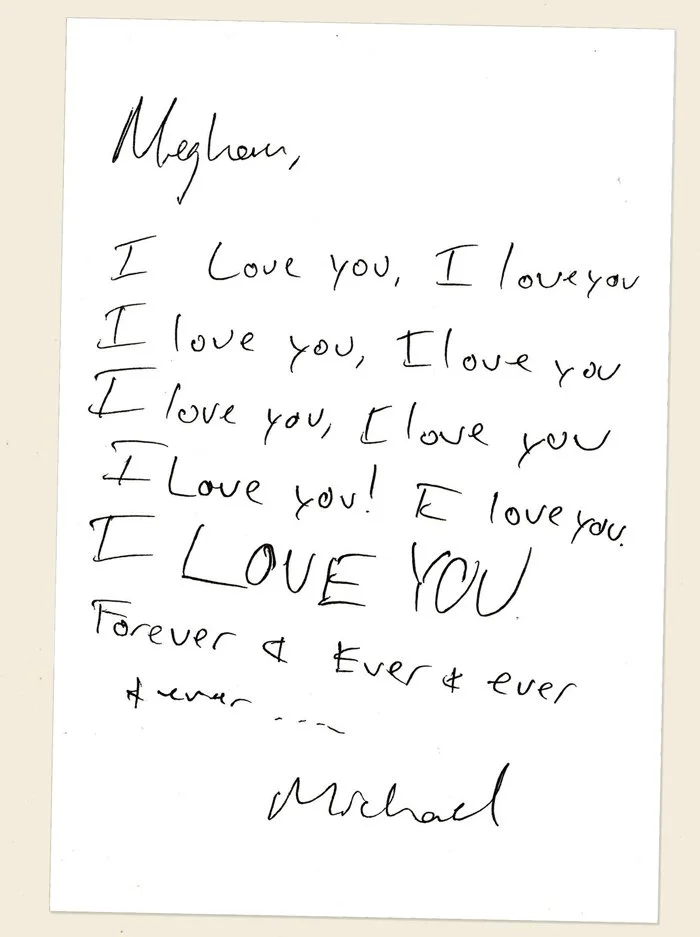 Meghan,
I Love you, I love you
I love you, I love you
I love you, I love you
I Love you! I love you.
I LOVE YOU
Forever & Ever & ever
& ever ----
Michael